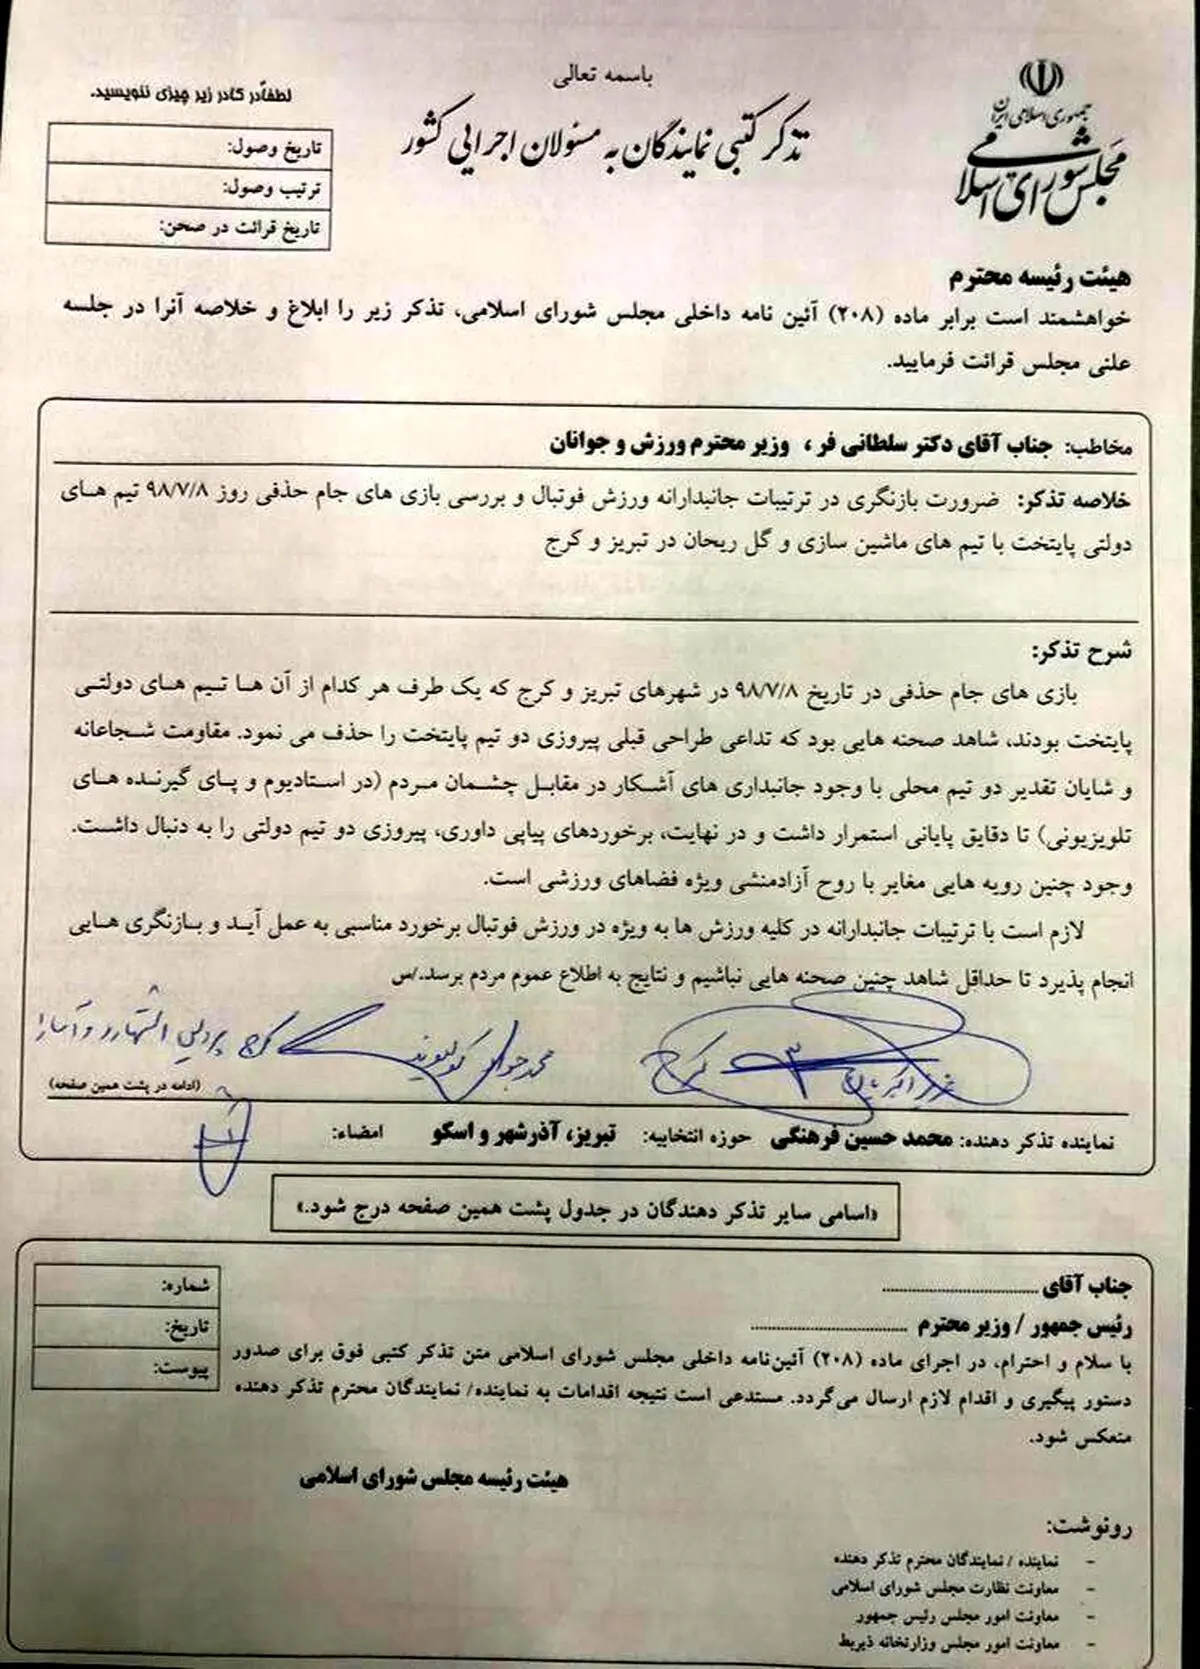 باسمه تعالی
جمهوری اسلامی ایران
مجلس شورای اسلامی
تذکر کتبی نمایندگان به مسئولان اجرایی کشور
لطفاً در کادر زیر چیزی ننویسید.
تاریخ وصول:
ترتیب وصول:
تاریخ قرائت در صحن:
هیئت رئیسه محترم
خواهشمند است برابر ماده (۲۰۸) آئین نامه داخلی مجلس شورای اسلامی، تذکر زیر را ابلاغ و خلاصه آنرا در جلسه
علنی مجلس قرائت فرمایید.
مخاطب: جناب آقای دکتر سلطانی فر ، وزیر محترم ورزش و جوانان
خلاصه تذکر: ضرورت بازنگری در ترتیبات جانبدارانه ورزش فوتبال و بررسی بازی های جام حذفی روز ۹۸/۷/۸ تیم های
دولتی پایتخت با تیم های ماشین سازی و گل ریحان در تبریز و کرج
شرح تذکر:
بازی های جام حذفی در تاریخ ۹۸/۷/۸ در شهرهای تبریز و کرج که یک طرف هر کدام از آن ها تیم های دولتی
پایتخت بودند، شاهد صحنه هایی بود که تداعی طراحی قبلی پیروزی دو تیم پایتخت را حذف می نمود. مقاومت شجاعانه
و شایان تقدیر دو تیم محلی با وجود جانبداری های آشکار در مقابل چشمان مردم (در استادیوم و پای گیرنده های
تلویزیونی) تا دقایق پایانی استمرار داشت و در نهایت، برخوردهای پیاپی داوری، پیروزی دو تیم دولتی را به دنبال داشت.
وجود چنین رویه هایی مغایر با روح آزادمنشی ویژه فضاهای ورزشی است.
لازم است با ترتیبات جانبدارانه در کلیه ورزش ها به ویژه در ورزش فوتبال برخورد مناسبی به عمل آید و بازنگری هایی
انجام پذیرد تا حداقل شاهد چنین صحنه هایی نباشیم و نتایج به اطلاع عموم مردم برسد./س
کرج
محمد جواد کولیوند کرج
(ادامه در پشت همین صفحه)
نماینده تذکر دهنده: محمد حسین فرهنگی حوزه انتخابیه: تبریز، آذرشهر و اسکو امضاء:
«اسامی سایر تذکر دهندگان در جدول پشت همین صفحه درج شود.»
شماره:
تاریخ:
پیوست:
جناب آقای ........................................
رئیس جمهور / وزیر محترم ........................................
با سلام و احترام، در اجرای ماده (۲۰۸) آئین‌نامه داخلی مجلس شورای اسلامی متن تذکر کتبی فوق برای صدور
دستور پیگیری و اقدام لازم ارسال می‌گردد. مستدعی است نتیجه اقدامات به نماینده/ نمایندگان محترم تذکر دهنده
منعکس شود.
هیئت رئیسه مجلس شورای اسلامی
رونوشت:
- نماینده / نمایندگان محترم تذکر دهنده
- معاونت نظارت مجلس شورای اسلامی
- معاونت امور مجلس رئیس جمهور
- معاونت امور مجلس وزارتخانه ذیربط